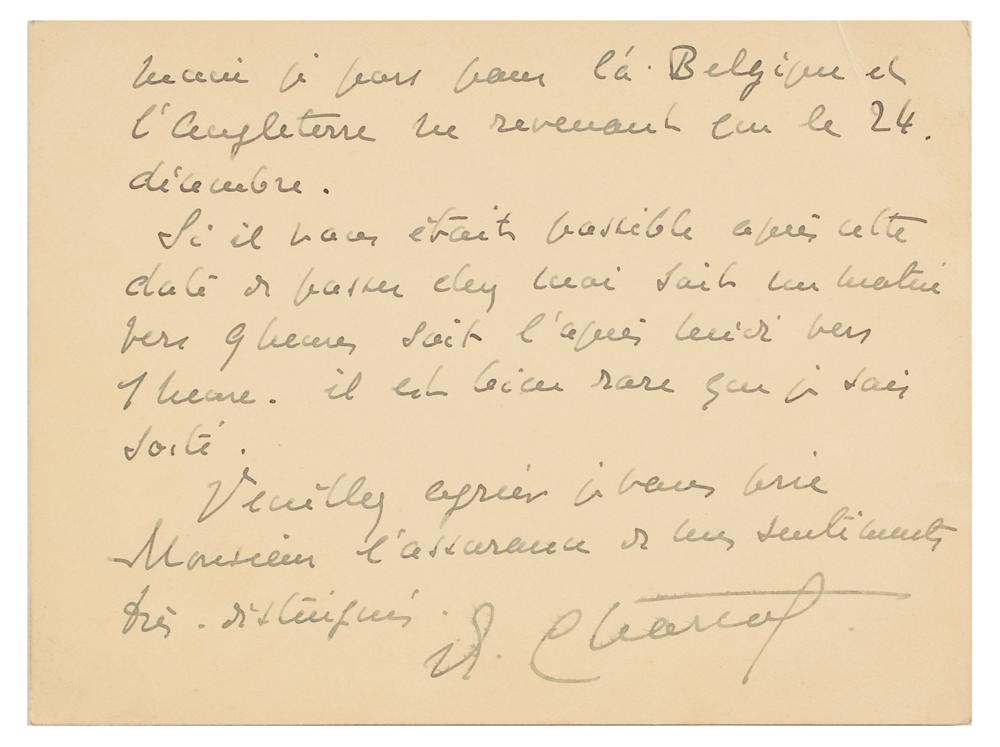 main je pars pour la Belgique et
l'Angleterre ne revenant que le 24.
décembre.
Si il vous était possible après cette
date de passer chez moi soit un matin
vers 9 heures soit l'après midi vers
1 heure. il est bien rare que je sois
sorti.
Veuillez agréer je vous prie
Monsieur l'assurance de mes sentiments
très distingués.
J. Charcot